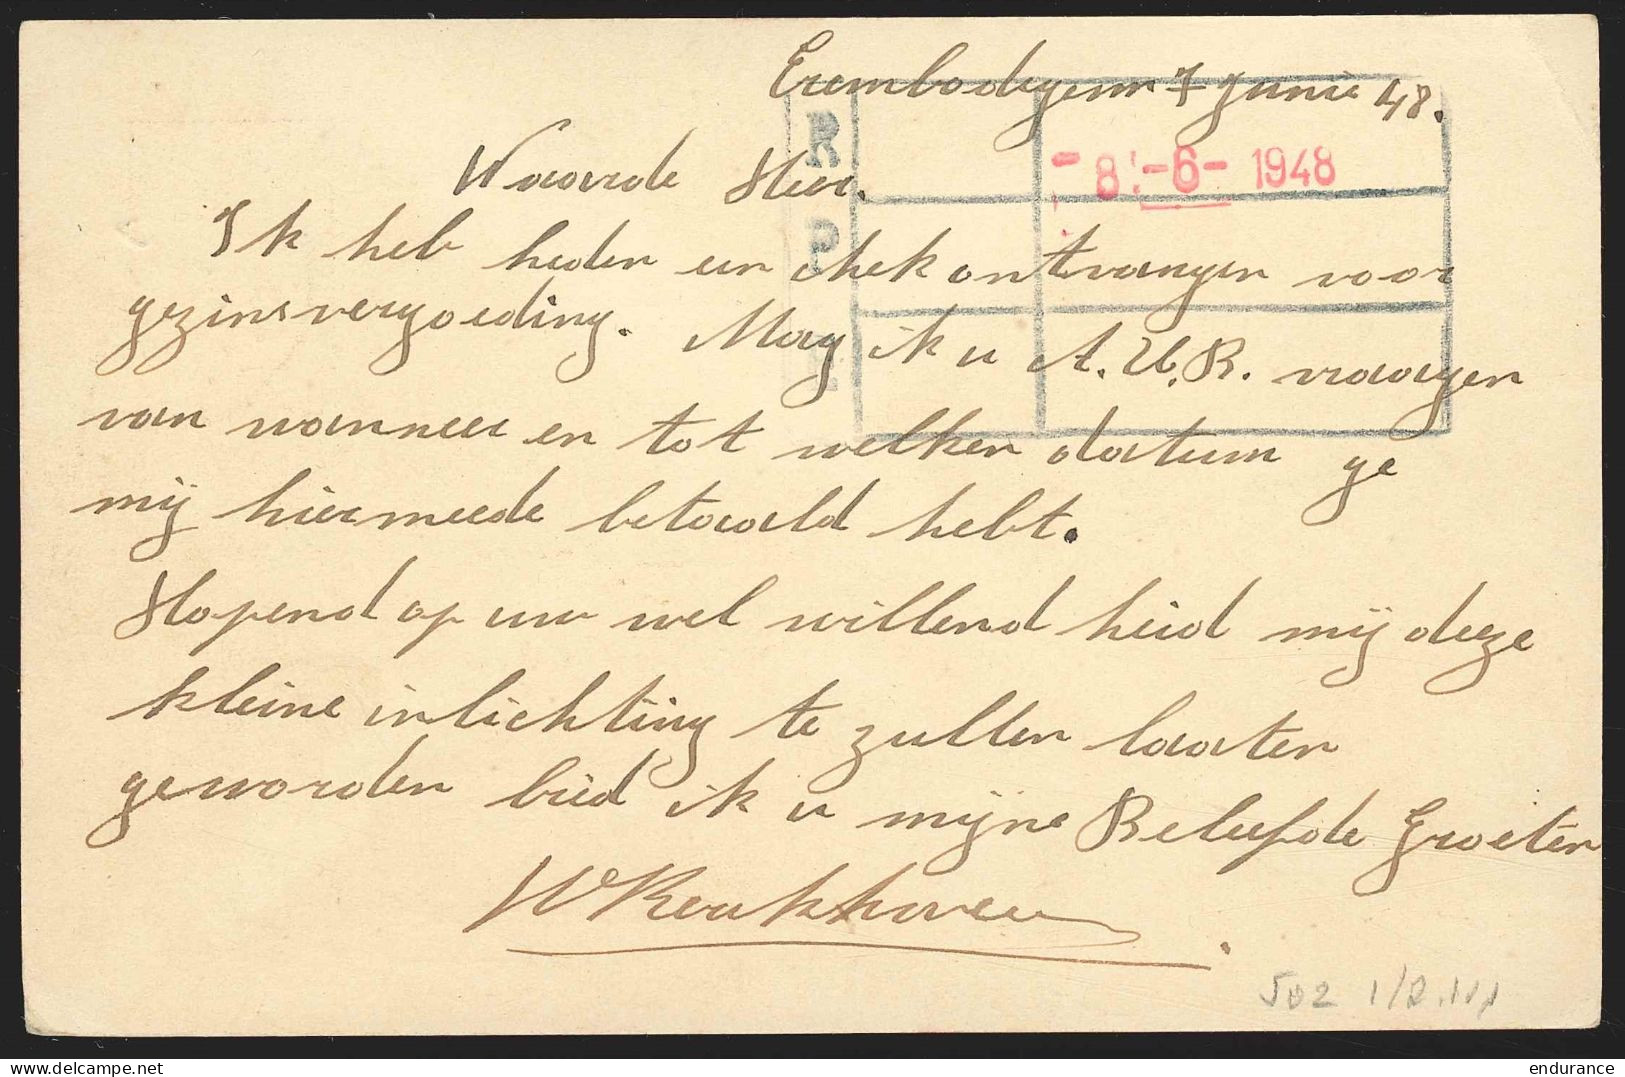 Erembodegem 7 Junie 48.
R
P
- 8 -6- 1948
Waarde Heer.
Ik heb heden een chek ontvangen voor
gezinsvergoeding. Mag ik u A.U.B. vraagen
van wanneer en tot welken datum ge
mij hiermeede betaald hebt.
Hopend op uw wel willend heid mij deze
kleine inlichting te zullen laaten
geworden bied ik u mijne Beleefde Groeten
502
endurance